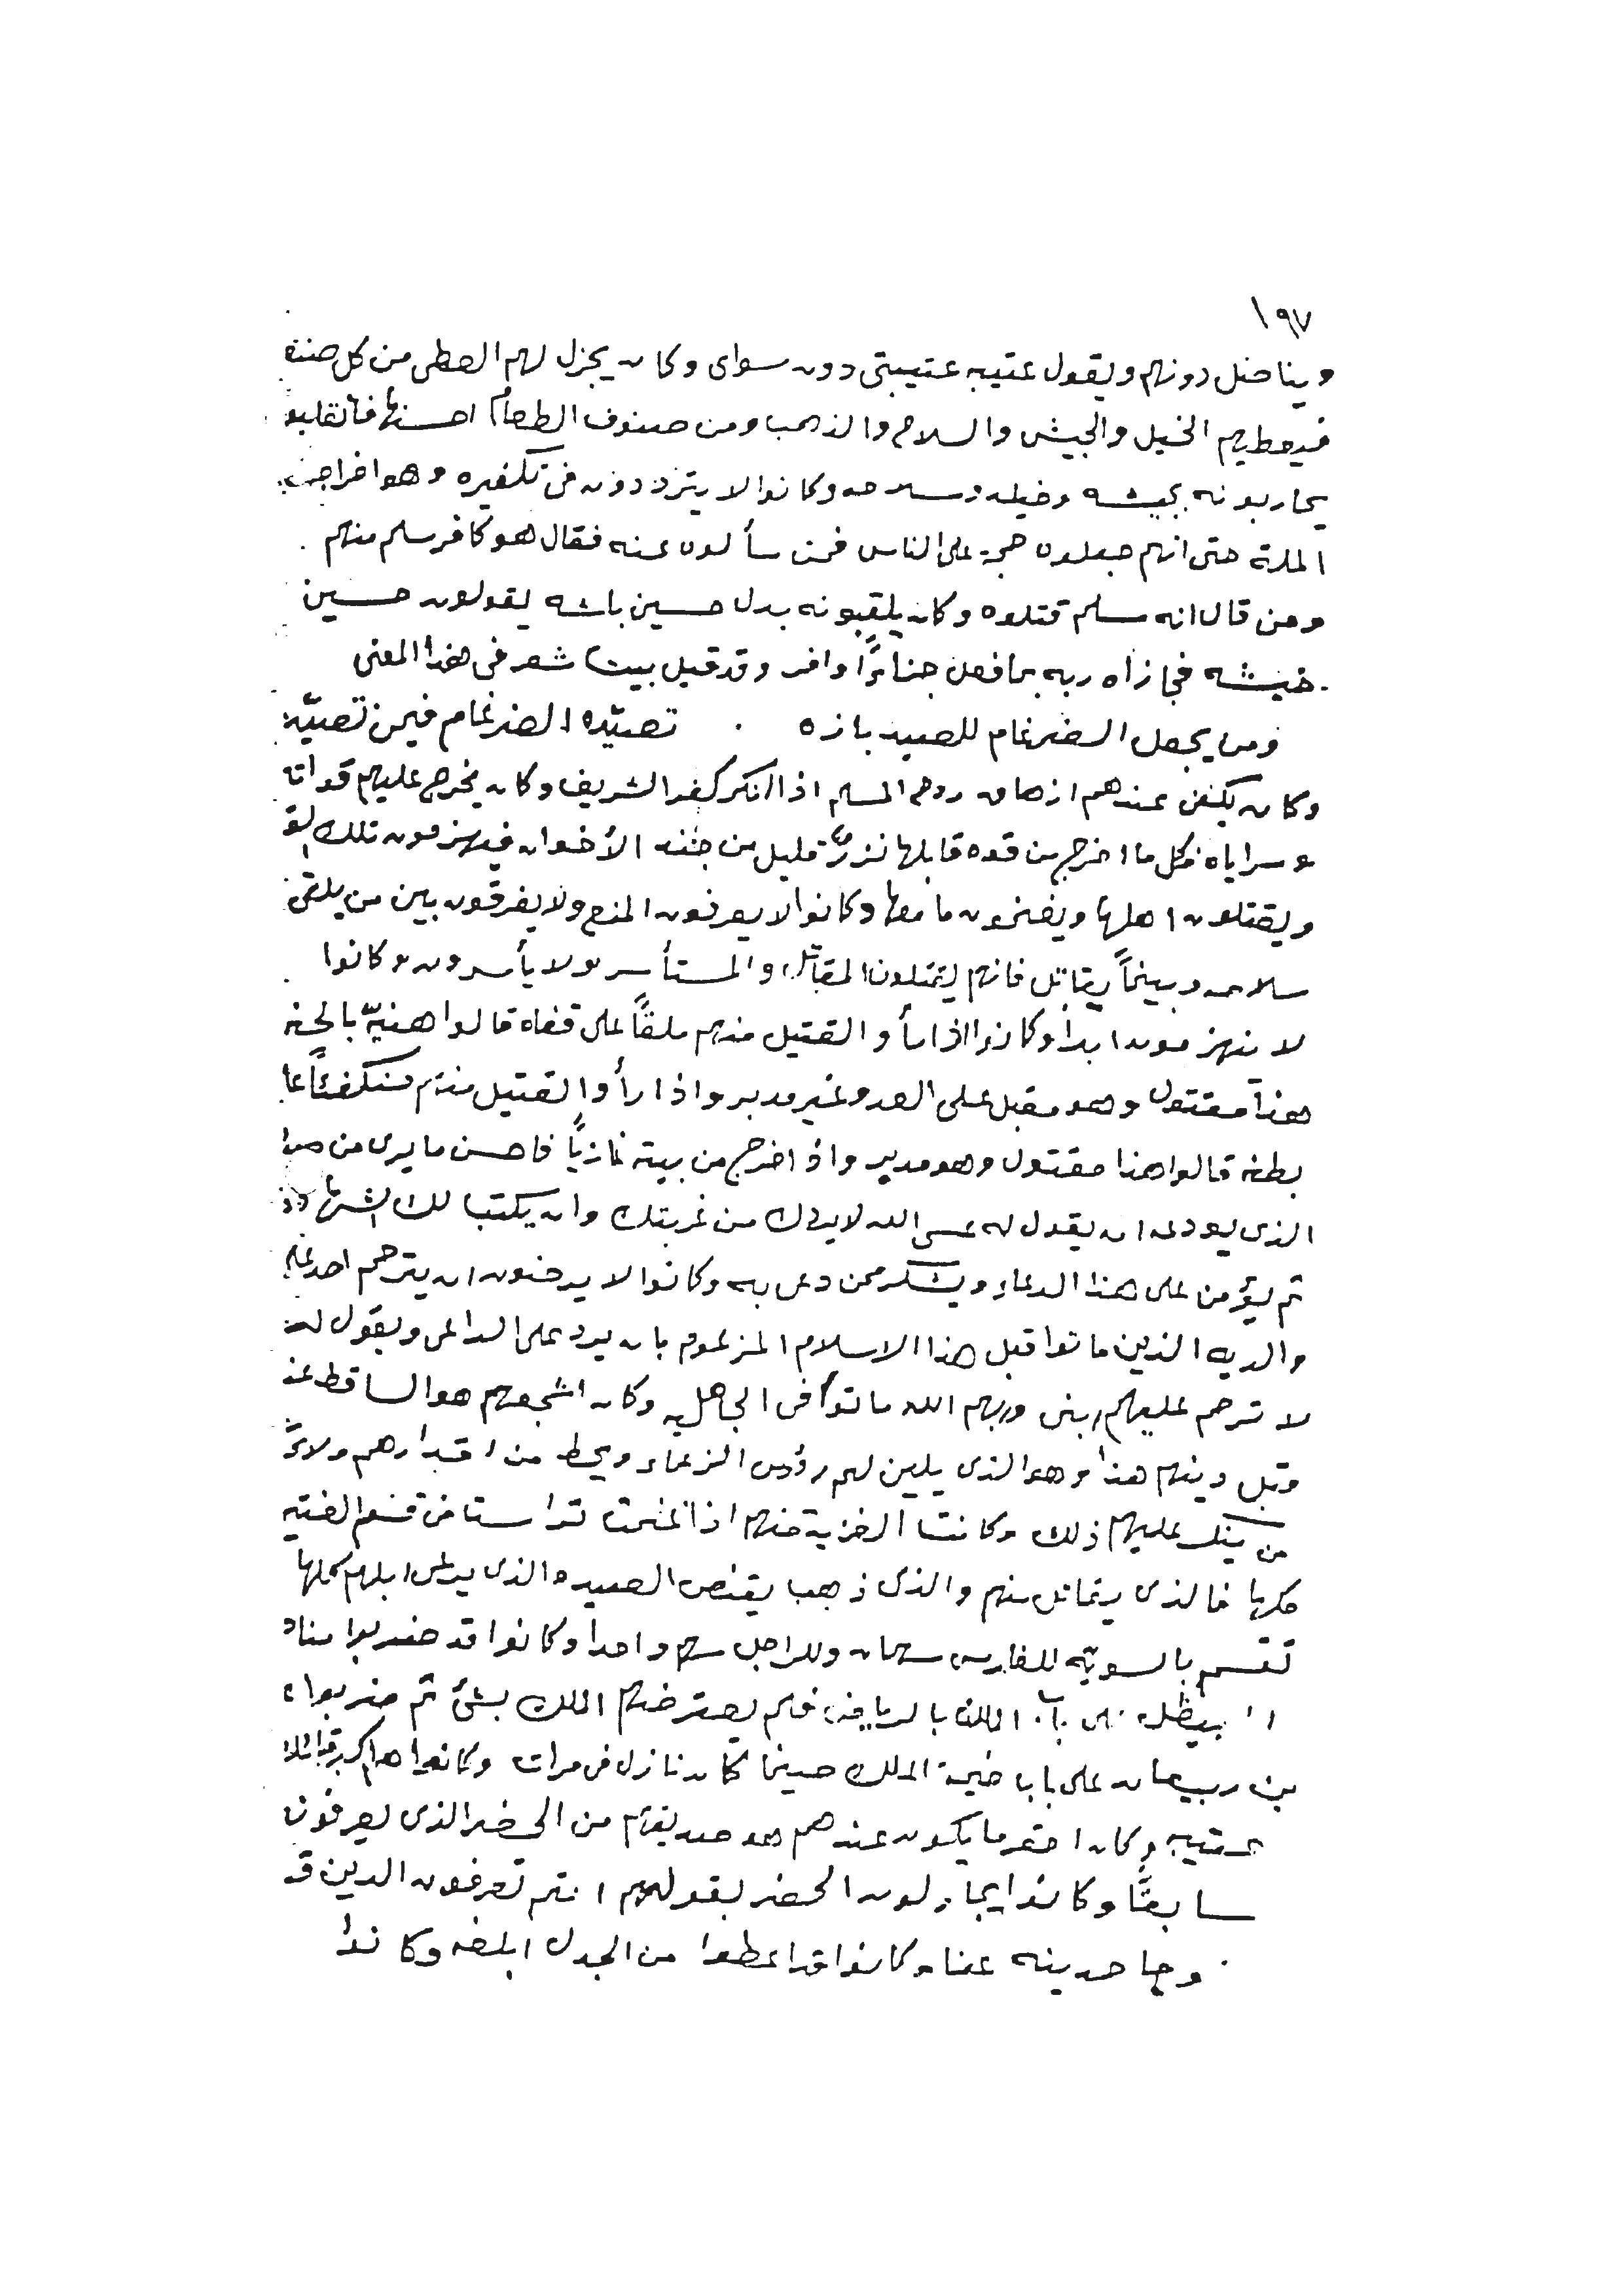 ١٩٧
ويناضل دونهم ويقول عتيبه عتيبتي دون سواى وكان يجزل لهم العطى من كل صنف
فيعطيهم الخيل والجيش والسلاح والذهب ومن صنوف الطعام احسنها فانقلبو
يحاربونه بجيشه وخيله وسلاحه وكانوا لا يترددون فى تكفيره وهو اخراجه
الملة حتى انهم جعلوه حجة على الناس فمن سألوه عنه فقال هو كافر سلم منهم
ومن قال انه مسلم قتلوه وكان يلقبونه بدل حسين باشه يقولون حسين
خيشه فجازاه ربه بما فعل جزاءً وافر وقد قيل بيت شعر فى هذا المعنى
ومن يجعل الضرغام للصيد بازه . تصيّده الضرغام فيمن تصيّد
وكان يكفى عندهم ازهاق روح المسلم اذا انكر كفر الشريف وكان يخرج عليهم قواته
وسراياه فكل ما اخرج من قوه قابلها نزرٌ قليل من جند الأخوان فيهزمون تلك القو
ويقتلون اهلها ويغنمون ما معها وكانوا لا يعرفون المنع ولا يفرقون بين من يلقى
سلاحه وبينماً يقاتل فانهم يقتلون المقاتل والمستأسر ولا يأسرون وكانوا
لا ينهزمون ابداً وكانوا اذا رأو القتيل منهم ملقاً على قفاه قالوا هنيّه بالجنه
هذا مقتول وهو مقبل على العدو غير مدبر واذا رأو القتيل منهم منكفئاً على
بطنه قالوا هذا مقتول وهو مدبر واذا خرج من بيته غازياً فاحسن ما يرى من
الذى يودعه ان يقول له عسى الله لا يردك من غربتك وان يكتب لك الشهاده
ثم يؤمن على هذا الدعاء ويشكر ممن دعى به وكانوا لا يرضون ان يترحم احد على
والديه الذين ماتوا قبل هذا الاسلام المزعوم بان يرد على الداعى ويقول له
لا ترحم عليهم ماتوا فى الجاهليه وكان اشجعهم هو الساقط عند
قبل دينهم هذا وهو الذى يلين لهم رؤس الزعماء ويحط من اقدارهم ولا
من ينكر عليهم ذلك وكانت الغزية منهم اذا غنمت تراست فى قسم الغنيه
كلها فالذى يقاتل منهم والذى ذهب يقنص الصيد والذى يرعى ابلهم كلها
تقسم بالسويّه للفارس سهمان وللراجل سهم واحداً وكانوا قد ضربوا مناد
باب الملك بالرياض فلم يعترضهم الملك بشئ ثم ضربوا
بن ربيعان على باب خيمة الملك حينما كان نازل فى مرات وكانوا هم اكبر قبائل
عتيبه وكان احقر ما يكون عندهم هو صديقهم من الحضر الذى يعرفون
سابقاً وكانوا يجادلون الحضر بقولهم انتم تعرفون الدين قد
وجاحدينه عنا وكانوا قد اعطوا من الجدل ابلغه وكانوا